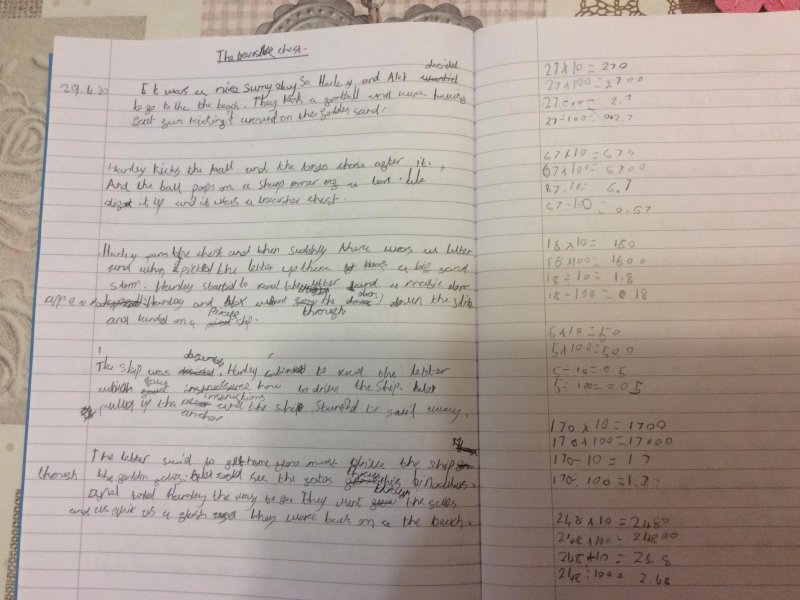 The treasure chest.
decided
29.4.20 It was a nice sunny day so Harley and Alex
to go to the the beach. They took a football and were having
great fun kicking it around on the golden sand.
Harley kicks the ball and the boys chase after it.
And the ball pops on a sharp corner of a box. Alex
it up and it was a treasure chest.
Harley opens the chest and then suddenly there was a letter
and when picked the letter up there a big sand
storm. Harley started to read the letter and a music door
Harley and Alex went the door down the slide
through
and landed on a pirate ship.
The ship was Harley continued to read the letter
which gave how to drive the ship. Alex
instructions
pulled up the and the ship started to sail away.
anchor
The letter said to get home you must drive the ship
through the golden gates. Alex could see the gates binoculars
and told Harley the way to go. They went through the gates
and as quick as a flash they were back on a the beach.
27 x 10 = 270
27 x 100 = 2700
27 ÷ 10 = 2.7
27 ÷ 100 = 0.27
67 x 10 = 670
67 x 100 = 6700
67 ÷ 10 = 6.7
67 ÷ 100 = 0.67
18 x 10 = 180
18 x 100 = 1800
18 ÷ 10 = 1.8
18 ÷ 100 = 0.18
5 x 10 = 50
5 x 100 = 500
5 ÷ 10 = 0.5
5 ÷ 100 = 0.05
170 x 10 = 1700
170 x 100 = 17000
170 ÷ 10 = 17
170 ÷ 100 = 1.7
248 x 10 = 2480
248 x 100 = 24800
248 ÷ 10 = 24.8
248 ÷ 100 = 2.48